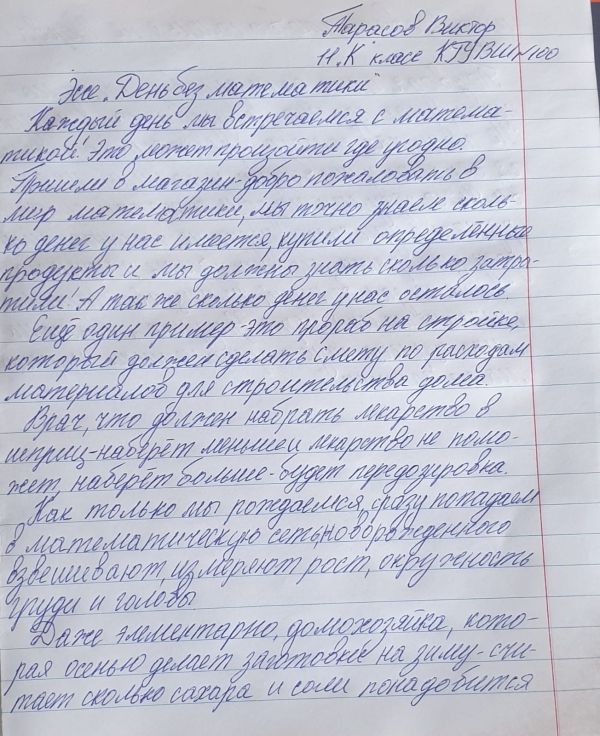 Тарасов Виктор
11 "К" класс КГУВШИ№100
Эссе "День без математики"
Каждый день мы встречаемся с матема-
тикой. Это может произойти где угодно.
Пришли в магазин-добро пожаловать в
мир математики, мы точно знаем сколь-
ко денег у нас имеется, купили определённые
продукты и мы должны знать сколько затра-
тили. А так же сколько денег у нас осталось.
Ещё один пример-это прораб на стройке,
который должен сделать смету по расходам
материалов для строительства дома.
Врач, что должен набрать лекарство в
шприц-наберёт меньше и лекарство не помо-
жет, наберёт больше-будет передозировка.
Как только мы рождаемся, сразу попадаем
в математическую сеть, новорожденного
взвешивают, измеряют рост, окружность
груди и головы
Даже элементарно, домохозяйка, кото-
рая осенью делает заготовки на зиму-счи-
тает сколько сахара и соли понадобится